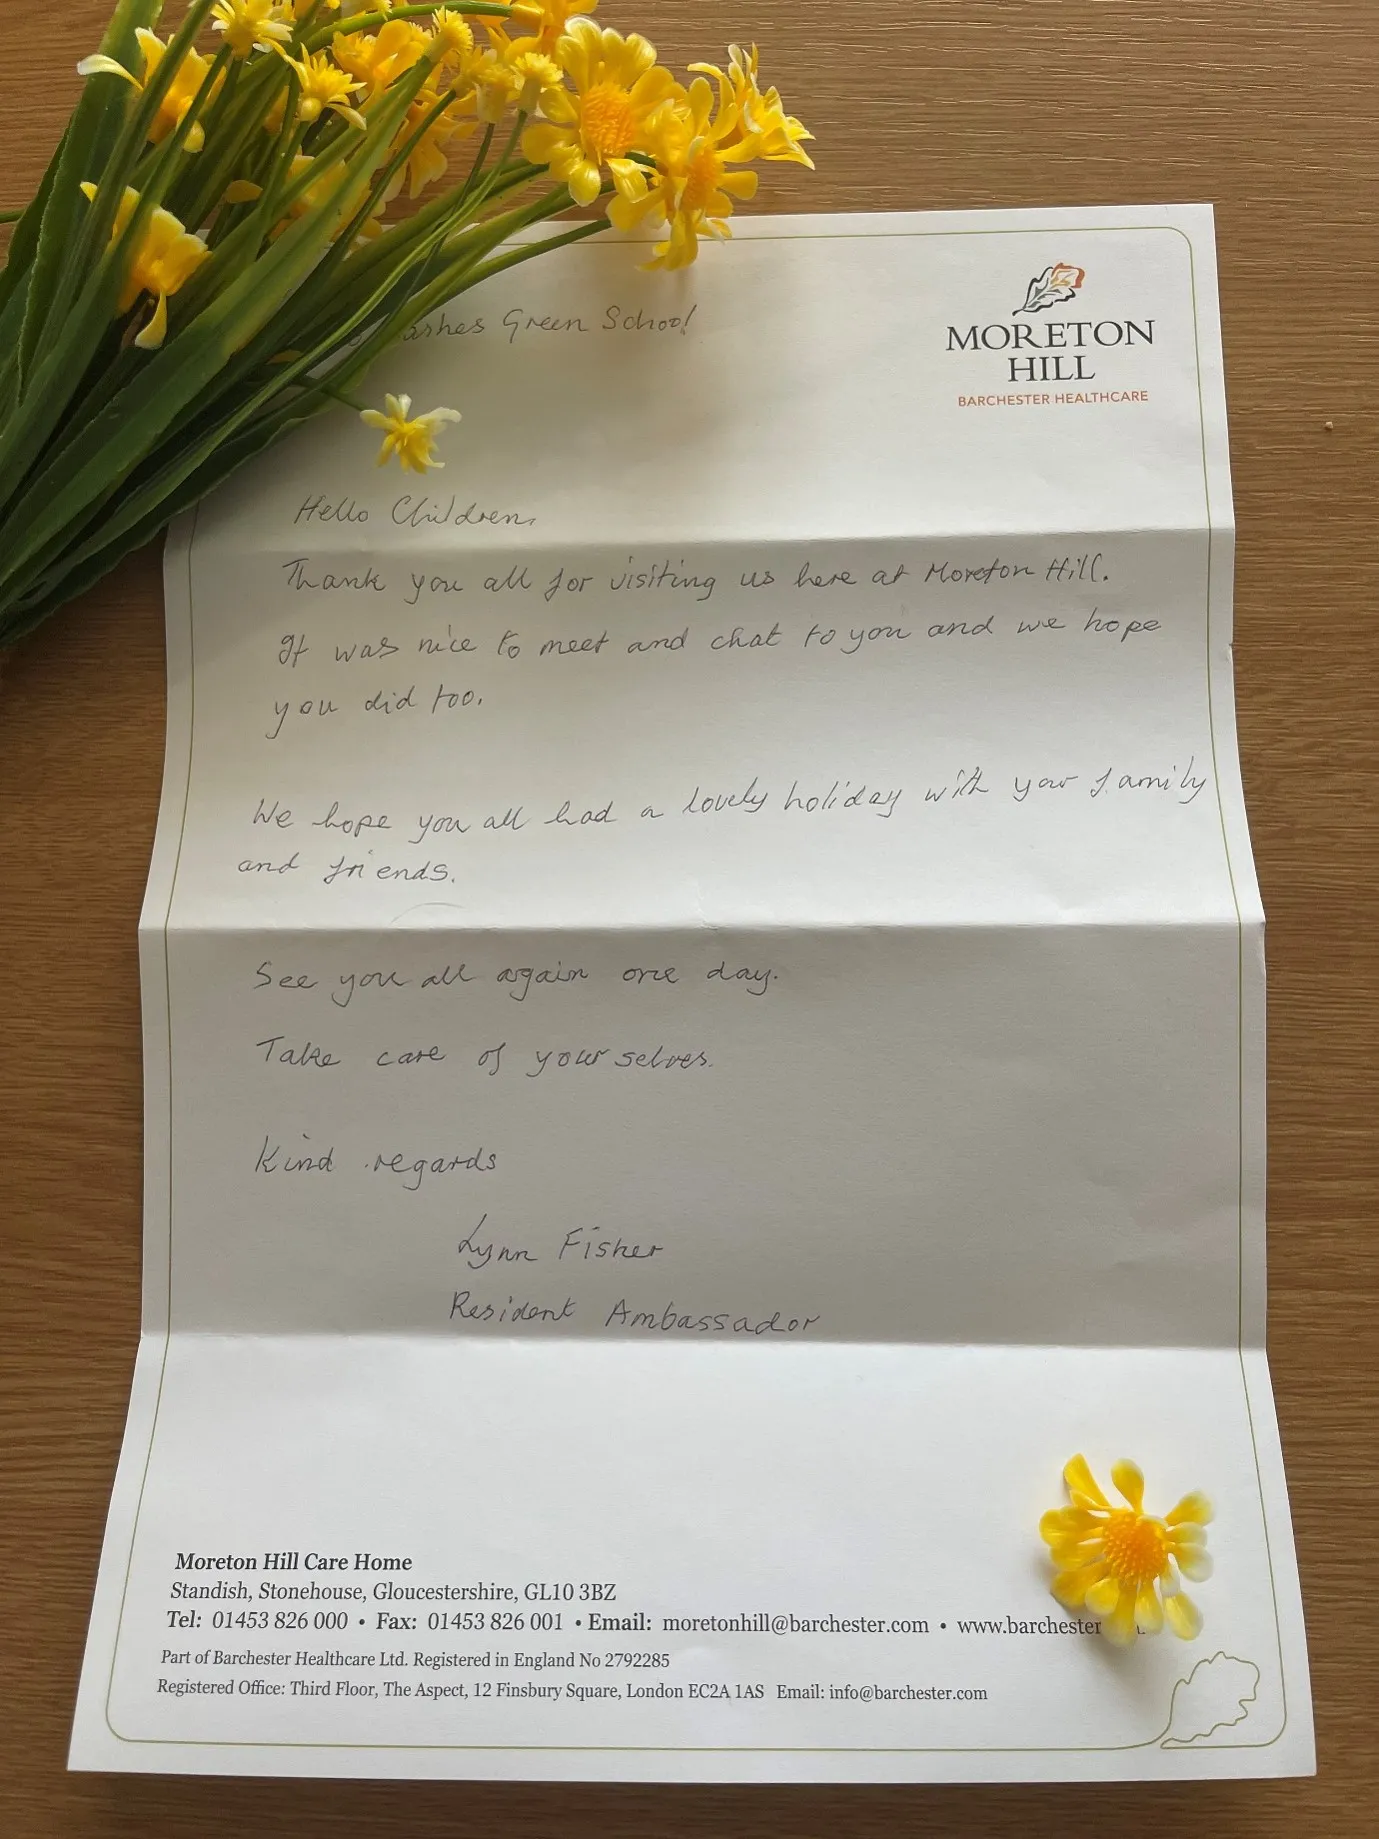 Green School
MORETON
HILL
BARCHESTER HEALTHCARE
Hello Children,
Thank you all for visiting us here at Moreton Hill.
It was nice to meet and chat to you and we hope
you did too.
We hope you all had a lovely holiday with your family
and friends.
See you all again one day.
Take care of yourselves.
Kind regards
Lynn Fisher
Resident Ambassador
Moreton Hill Care Home
Standish, Stonehouse, Gloucestershire, GL10 3BZ
Tel: 01453 826 000 • Fax: 01453 826 001 • Email: moretonhill@barchester.com • www.barchester
Part of Barchester Healthcare Ltd. Registered in England No 2792285
Registered Office: Third Floor, The Aspect, 12 Finsbury Square, London EC2A 1AS Email: info@barchester.com